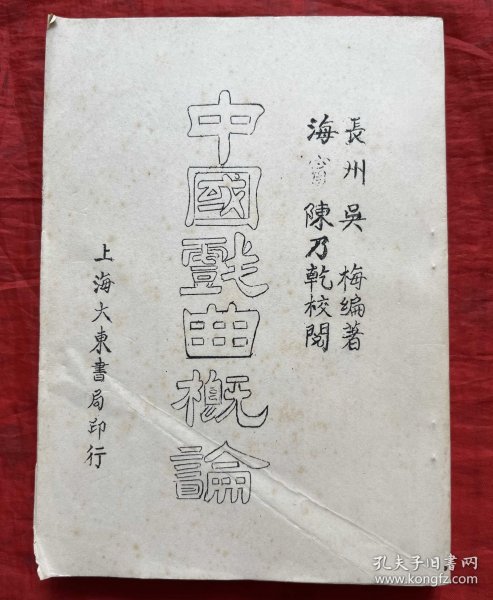 長州 吳 梅編著
海甯 陳乃乾校閱
中國戲曲概論
上海大東書局印行
孔夫子旧书网
www.kongfz.com